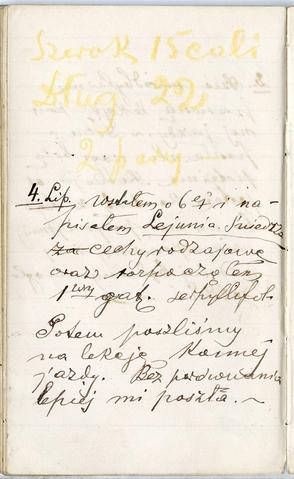 Szerok 15 cali
Dług 22
2 paski
4. Lip. wstałem o 6ej i na-
pisałem Lejunia.
za cechy rodzajowe
oraz rozpocząłem
1wszy gat.
Potem poszliśmy
na lekcję konnej
jazdy. Bez porównania
lepiej mi poszła. ~